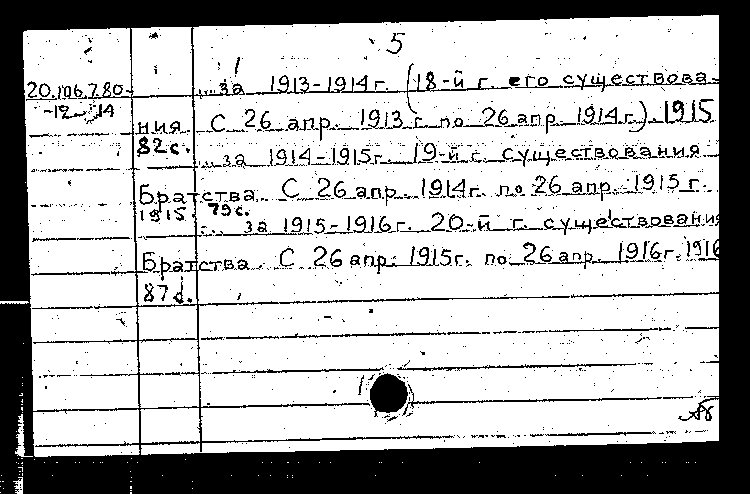 5
20.106.780-
-12 14
...за 1913-1914г. (18-й г. его существова-
ния. С 26 апр. 1913 г. по 26 апр. 1914г.). 1915
82с.
...за 1914-1915г. 19-й г. существования
Братства. С 26 апр. 1914г. по 26 апр. 1915 г.
1915. 79с.
... за 1915-1916г. 20-й г. существования
Братства. С 26 апр. 1915г. по 26 апр. 1916г. 1916
87с.